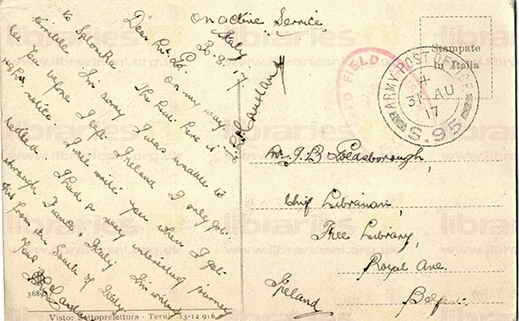 On active Service
Italy
30.8.17
Dear Mr G.
On my way
to Salonika. The heat here is
terrible. I'm sorry I was unable to
see you before I left Ireland I only got
notice. I will write you when I get
settled. I had a very interesting journey
through France, Italy. I'm writing
this from the South of Italy.
Stampate
in Italia
FIELD
ARMY POST OFFICE
31 AU
17
S.95
Mr J.B Goldsborough,
Chief Librarian,
Free Library,
Royal Ave.
Belfast
Ireland
Visto: Sottoprefettura - Terni 13-12 916
libraries